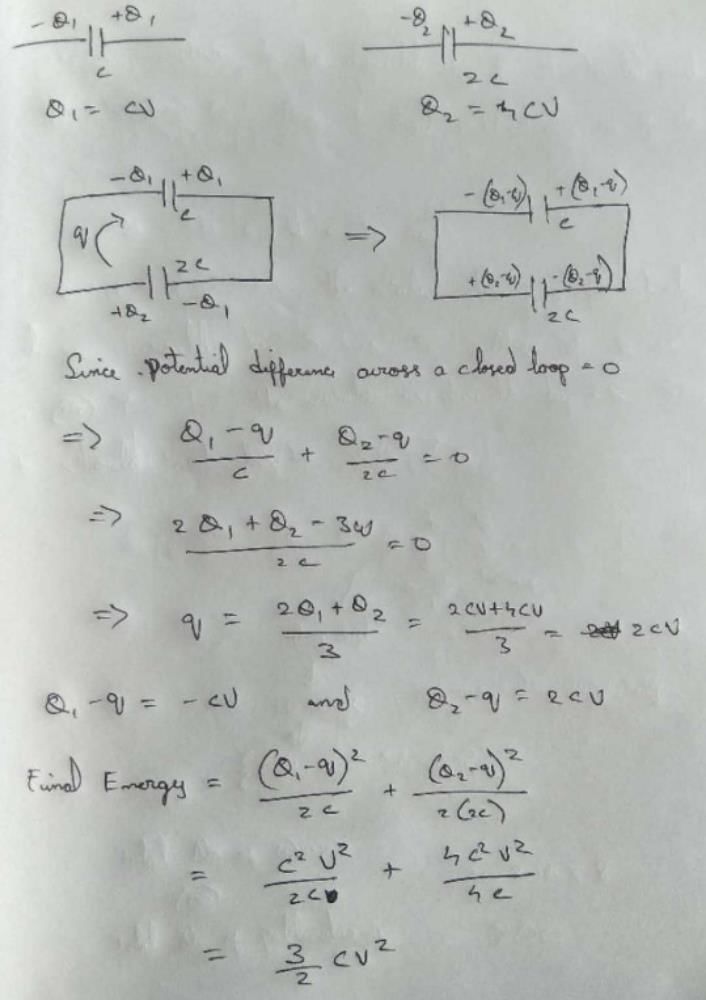 -Q₁ +Q₁ -Q₂ +Q₂
C 2C
Q₁ = CV Q₂ = 4CV
-Q₁ +Q₁ -(Q₁-q) +(Q₁-q)
C C
q ⇒
2C +(Q₂-q) -(Q₂-q)
+Q₂ -Q₁ 2C
Since potential difference across a closed loop = 0
⇒ (Q₁ - q)/C + (Q₂ - q)/2C = 0
⇒ (2Q₁ + Q₂ - 3q)/2C = 0
⇒ q = (2Q₁ + Q₂)/3 = (2CV+4CV)/3 = 2CV
Q₁ - q = - CV and Q₂ - q = 2CV
Final Energy = (Q₁-q)²/2C + (Q₂-q)²/2(2C)
= C²V²/2C + 4C²V²/4C
= 3/2 CV²